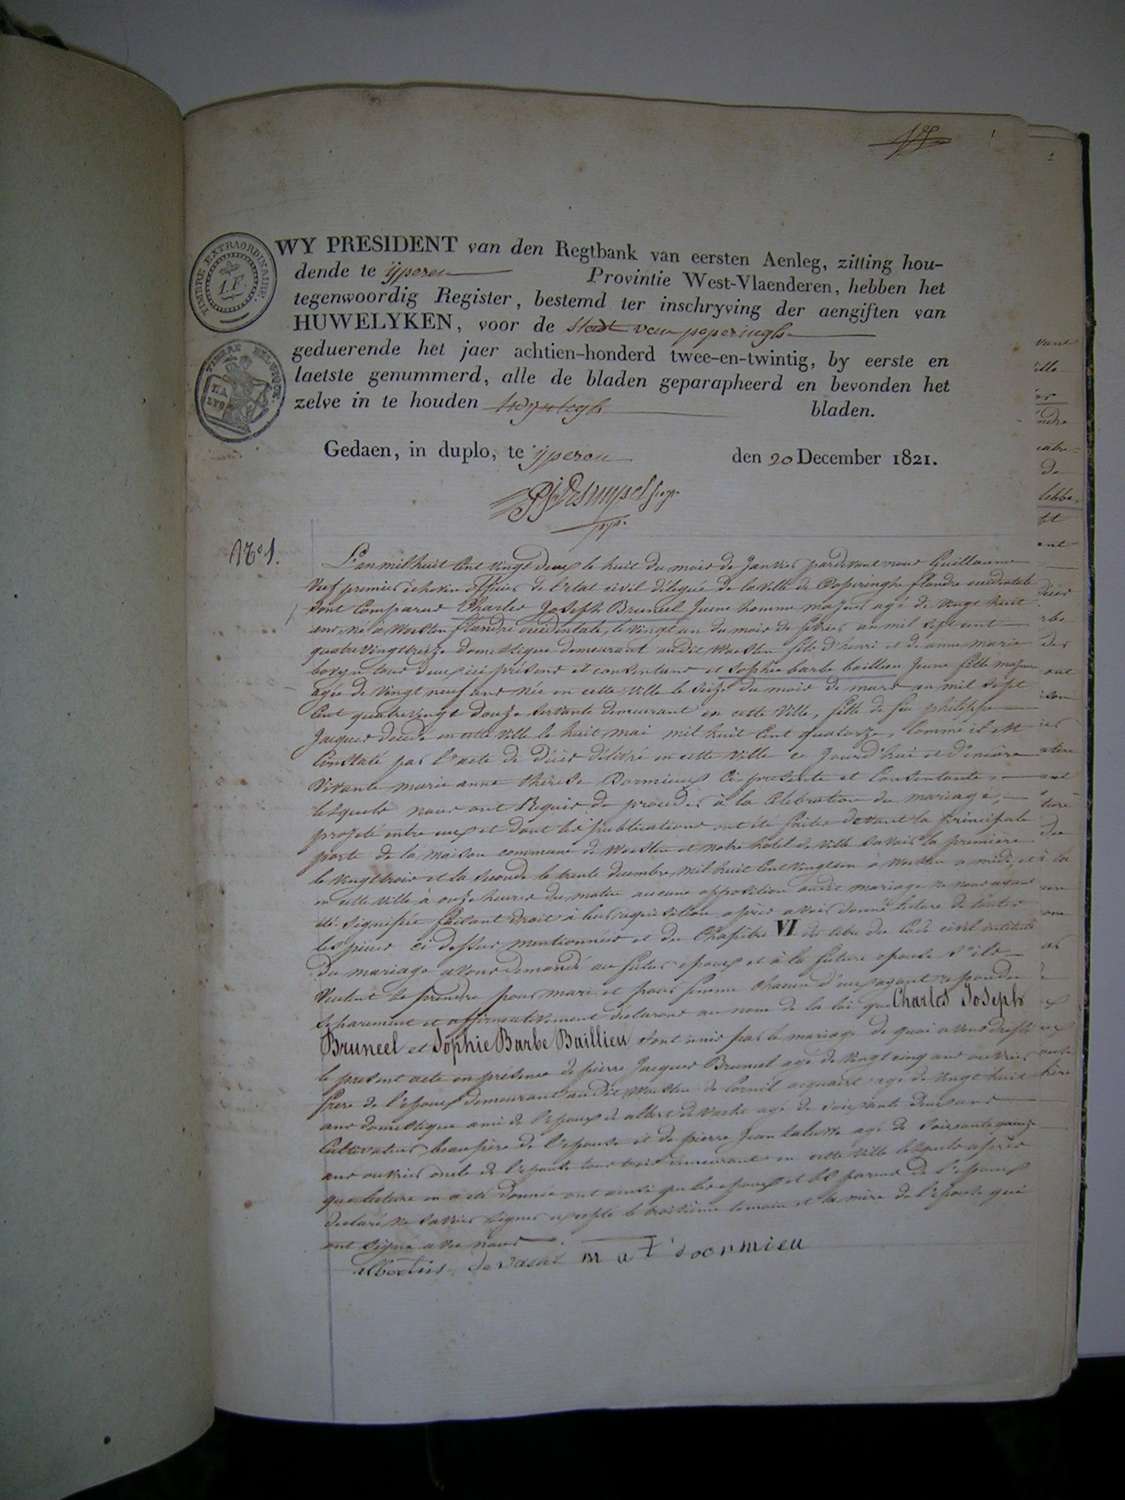 1
TIMBRE EXTRAORDINAIRE
WY PRESIDENT van den Regtbank van eersten Aenleg, zitting hou-
dende te ijperen Provintie West-Vlaenderen, hebben het
tegenwoordig Register, bestemd ter inschryving der aengiften van
HUWELYKEN, voor de Stadt van poperinghe
geduerende het jaer achtien-honderd twee-en-twintig, by eerste en
laetste genummerd, alle de bladen geparapheerd en bevonden het
zelve in te houden bladen.
Gedaen, in duplo, te ijperen den 20 December 1821.
N° 1.
L'an mil huit cent vingt deux le huit du mois de janvier pardevant nous Guillaume
premier échevin officier de l'état civil délégué de la ville de Poperinghe flandre occidentale
sont comparus Charles Joseph Bruneel jeune homme majeur agé de vingt huit
ans, né à Woesten flandre occidentale, le vingt un du mois de mil sept cent
quatrevingt treize domestique demeurant audit Woesten fils d'henri et de anne marie
tous deux ici présens et consentans et Sophie barbe baillieu jeune fille majeure
agée de vingt neuf ans née en cette ville le seize du mois de mars an mil sept
cent quatrevingt douze servante demeurant en cette ville, fille de feu philippe
Jacques décédé en cette ville le huit mai mil huit cent quatorze, comme il est
constaté par l'acte de décès délivré en cette ville ce jourd'hui et d'encore
vivante marie anne thérèse Dormieux ci présente et consentante,
lesquels nous ont requis de procéder à la célébration du mariage,
projeté entre eux et dont les publications ont été faites devant la principale
porte de la maison commune de Woesten et notre hôtel de ville savoir la première
le vingt trois et la seconde le trente décembre mil huit cent vingt un à Woesten à midi et
en cette ville à onze heures du matin aucune opposition audit mariage ne nous ayant
été signifiée faisant droit à leur réquisition après avoir donné lecture de toutes
les pièces ci dessus mentionnées et du Chapitre VI du titre du Code civil intitulé
du mariage avons demandé au futur époux et à la future épouse s'ils
veulent se prendre pour mari et pour femme chacun d'eux ayant répondu
séparément et affirmativement déclarons au nom de la loi que Charles Joseph
Bruneel et Sophie Barbe Baillieu sont unis par le mariage de quoi avons dressé
le présent acte en présence de pierre Jacques Bruneel agé de vingt cinq ans ouvrier
frère de l'époux demeurant audit Woesten de Corneil agé de vingt huit
ans domestique ami de l'époux de albert de vacht agé de soixante deux ans
cultivateur beaupère de l'épouse et de pierre Jean agé de soixante quinze
ans ouvrier oncle de l'épouse tous trois demeurant en cette ville lesquels après
que lecture en a été donnée ont ainsi que les époux et les parens de l'époux
déclaré ne savoir signer excepté le troisième témoin et la mère de l'épouse qui
ont signé avec nous
m a t doormieu